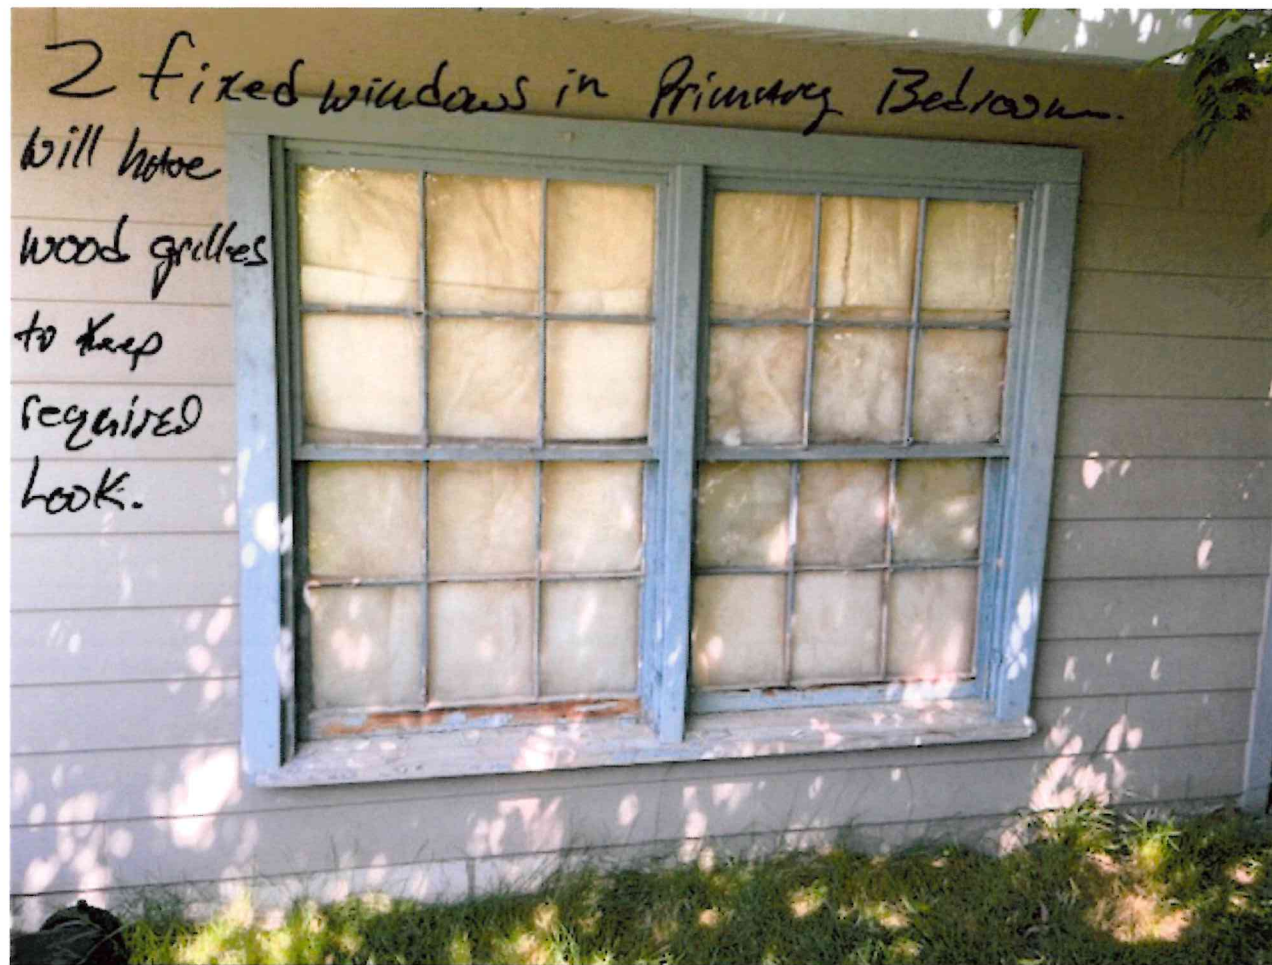 2 fixed windows in Primary Bedroom.
will have
wood grilles
to keep
required
Look.